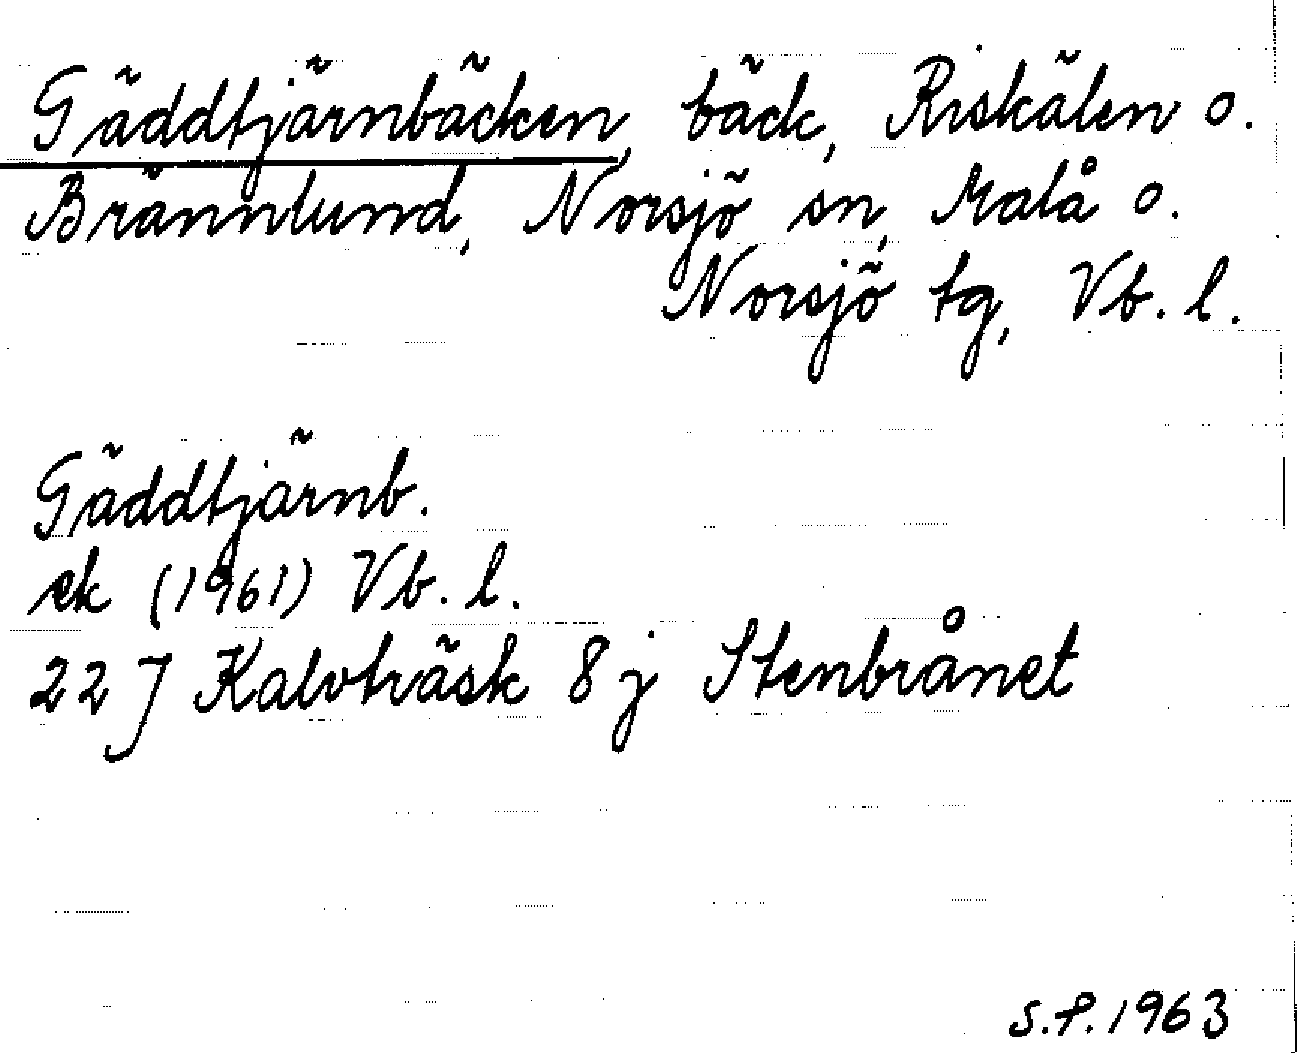 Gäddtjärnbäcken, bäck, Riskälen o.
Brännlund, Norsjö sn, Malå o.
Norsjö tg, Vb. l.
Gäddtjärnb.
ek (1961) Vb. l.
22 J Kalvträsk 8 j Stenbrånet
S.P. 1963